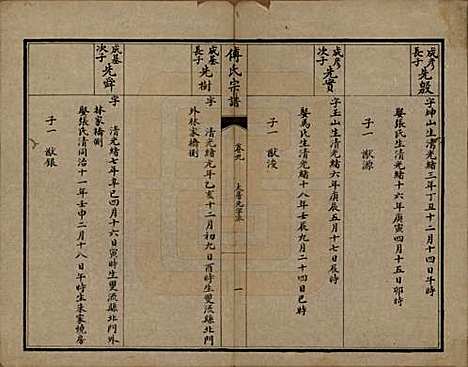 成彥長子 先殷
字坤山生清光緒三年丁丑十二月十四日午時
娶張氏生清光緒十六年庚寅四月十五日卯時
子一 猷源
成彥次子 先實
字玉山生清光緒六年庚辰五月十七日辰時
娶馬氏生清光緒十八年壬辰九月二十四日巳時
子一 猷浚
傅氏宗譜
卷九
一
成基長子 先樹
字 清光緒元年乙亥十二月初九日酉時生雙流縣北門
外林家橋側
成基次子 先舜
字 清光緒七年辛巳四月十六日寅時生雙流縣北門外
林家橋側
娶張氏清同治十一年壬申二月十八日午時生朱家燒房
子一 猷銀